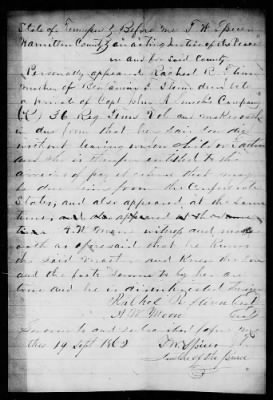 State of Tennessee } Before me T W Spicer
Hamilton County } an acting Justice of the Peace
in and for said County
Personally appeared Rachel R. Stone
mother of Benjamin Stone decd late
a private of Capt John A Company
(C) 36 Reg Tenns Vols and maketh oath
in due form that her said son died
without leaving widow child or Father
and she is therefore entitled to the
arrears of pay et cetera that may
be due him from the Confederate
States, and also appeared at the same
time,
A. W. Moore witness and made
oath as aforesaid that he knows
the said mother and knew the son
and the facts sworn to by her are
true and he is disinterested
Rachel R Stone
A. W. Moore
Sworn to and subscribed before me
this 19 Sept 1862
T W Spicer
Justice of the Peace